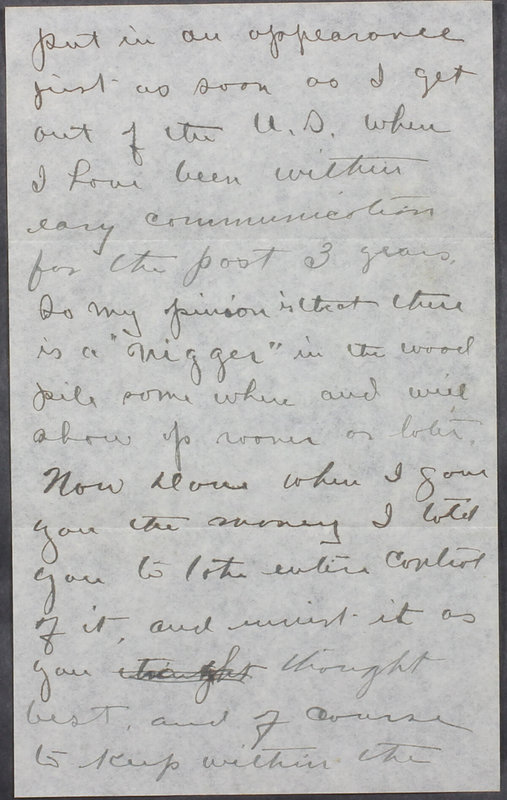 put in an appearance
just as soon as I get
out of the U.S. when
I have been within
easy communication
for the past 3 years.
So my pinion is that there
is a "nigger" in the wood
pile some where and will
show up sooner or later.
Now Dave when I gave
you the money I told
you to take entire control
of it, and invest it as
you thought thought
best, and of course
to keep within the